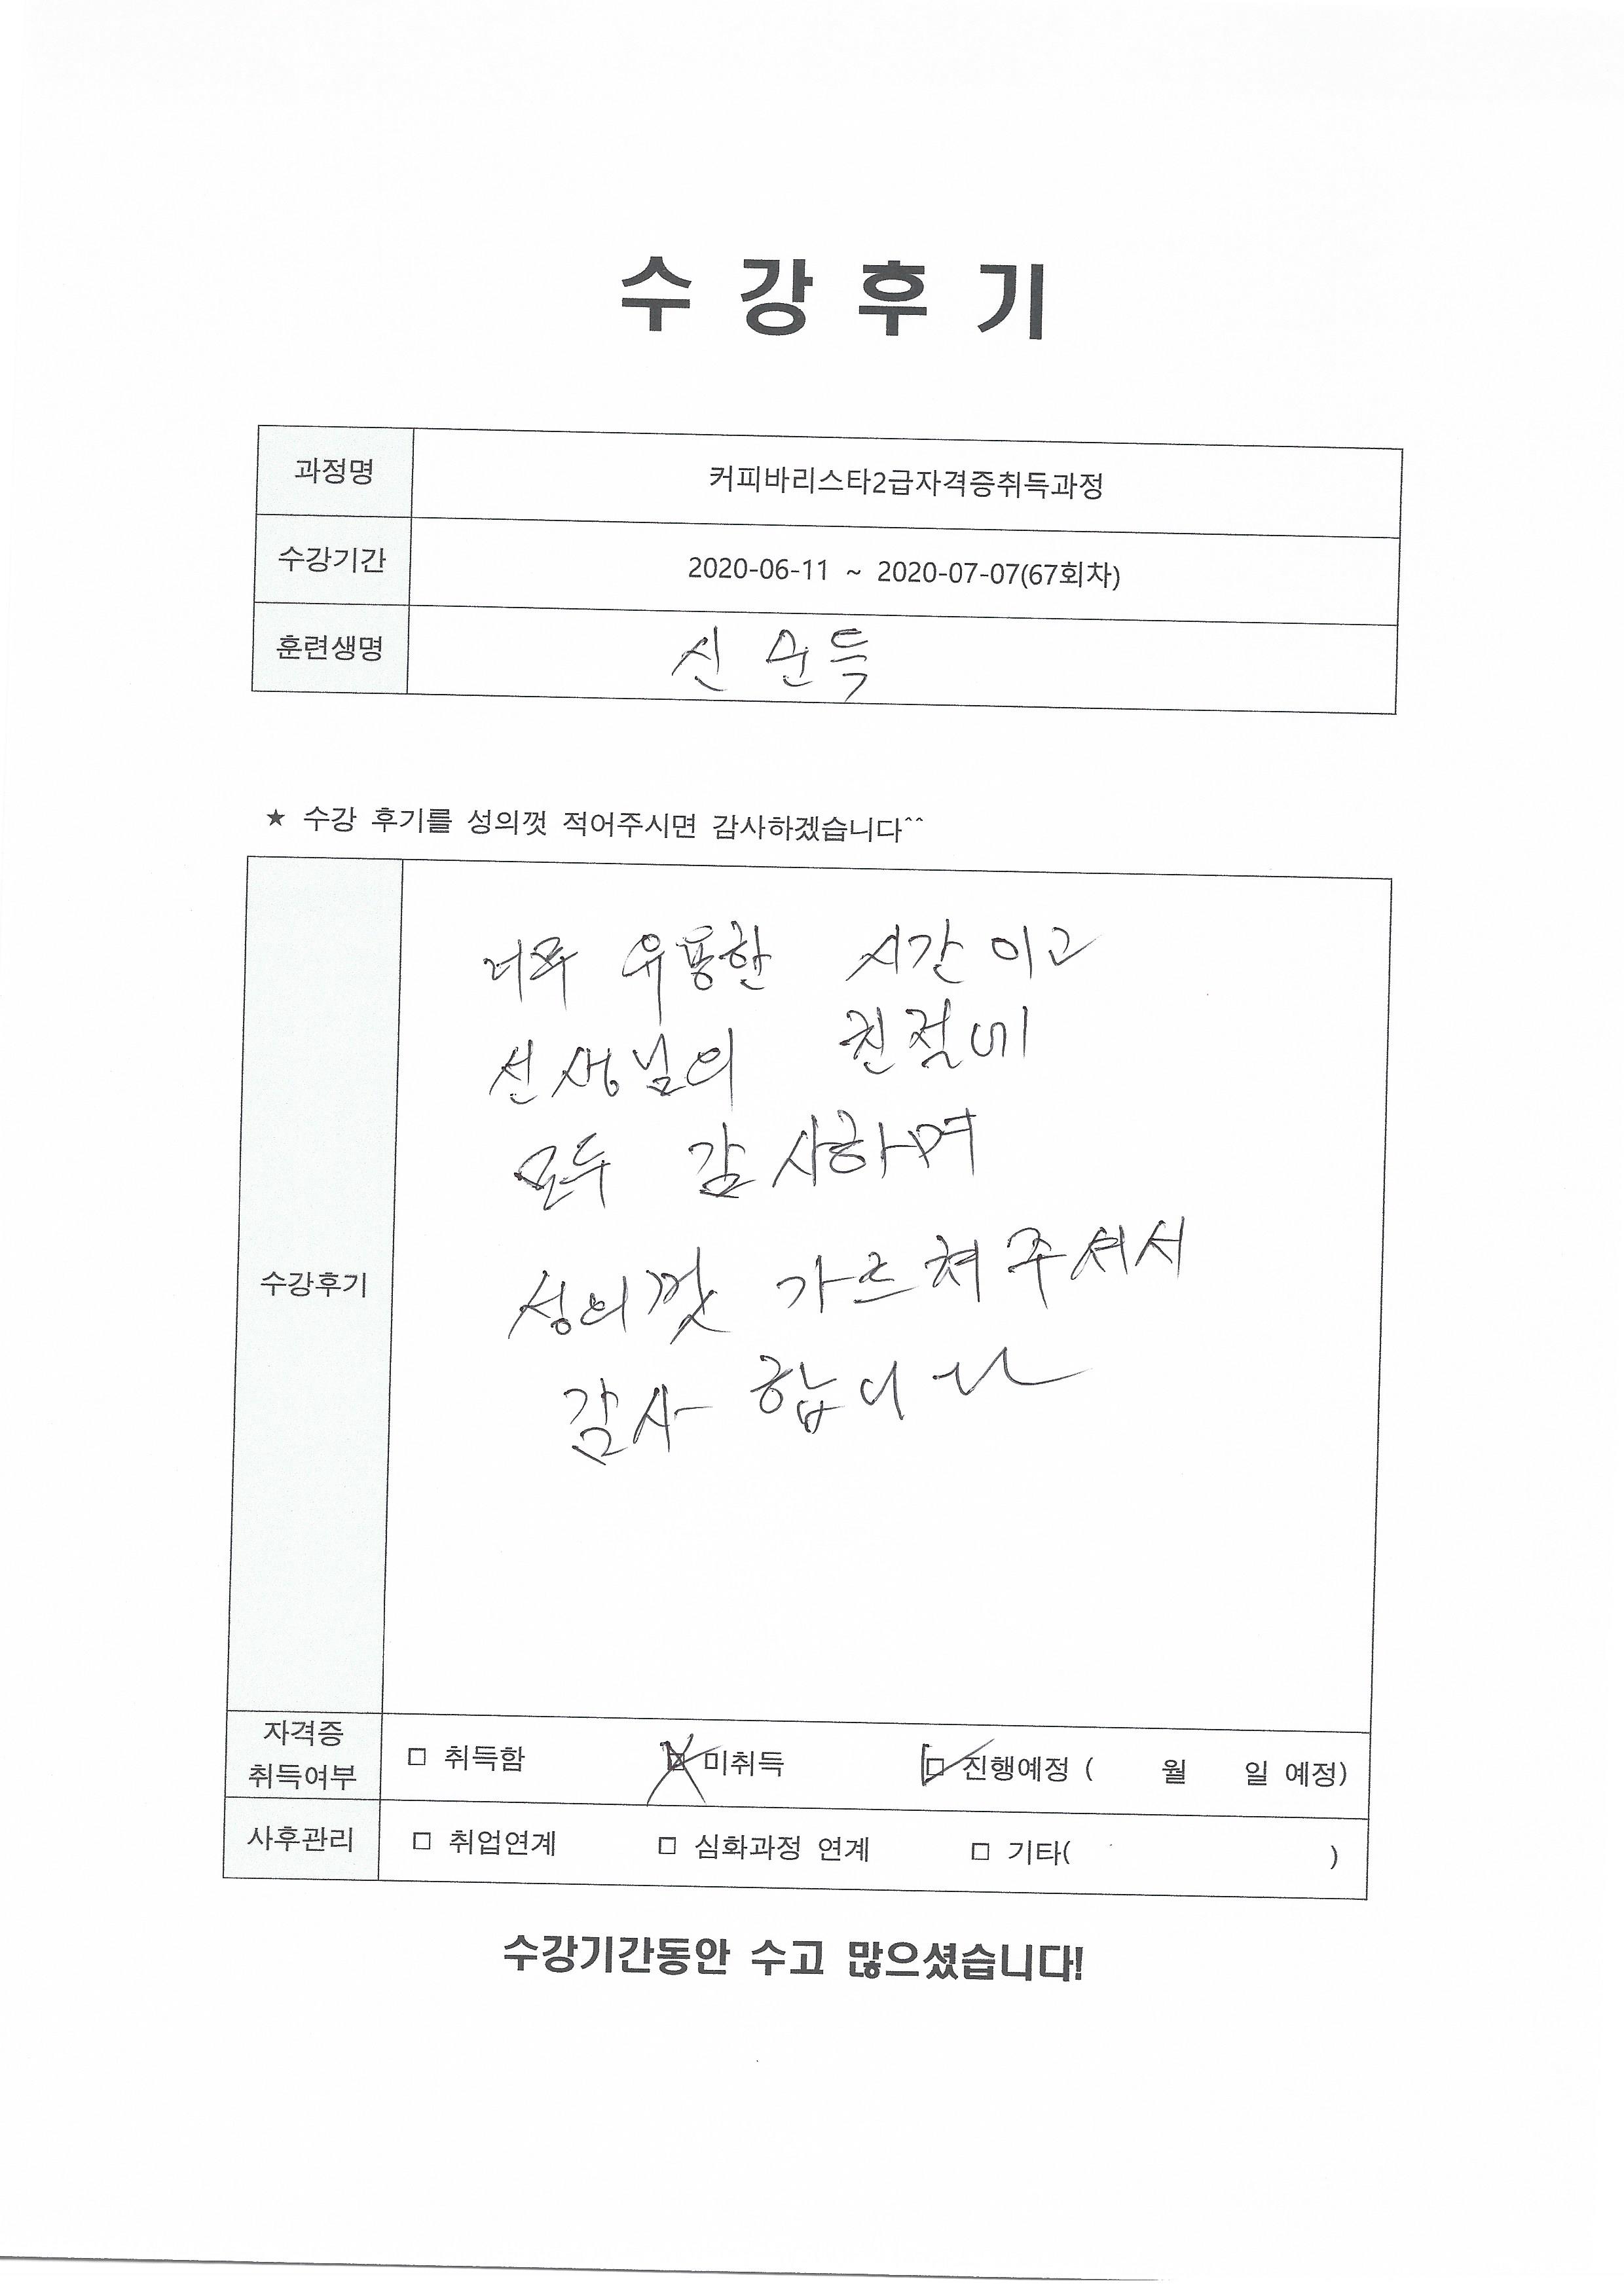 수강후기
과정명 커피바리스타2급자격증취득과정
수강기간 2020-06-11 ~ 2020-07-07(67회차)
훈련생명 신순득
★ 수강 후기를 성의껏 적어주시면 감사하겠습니다^^
너무 유용한 시간이고
선생님의 친절에
모두 감사하며
수강후기
성의껏 가르쳐주셔서
감사합니다
자격증
취득여부 □ 취득함 □ 미취득 □ 진행예정 ( 월 일 예정)
사후관리 □ 취업연계 □ 심화과정 연계 □ 기타( )
수강기간동안 수고 많으셨습니다!